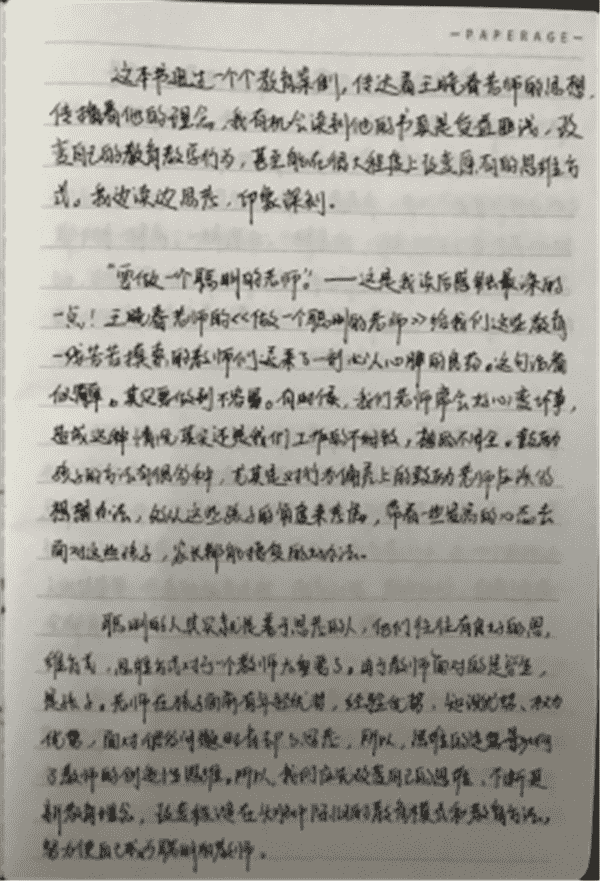 PAPERAGE
这本书通过一个个教育案例,传达着王晓春老师的思想,
传播着他的理念,我有机会读到他的书真是受益匪浅,改
变自己的教育教学行为,甚至能在很大程度上改变原有的思维方
式。我边读边思考,印象深刻。
“要做一个聪明的老师”。——这是我读后感触最深的
一点!王晓春老师的《做一个聪明的老师》给我们这些教育
一线苦苦摸索的教师们送来了一剂沁人心脾的良药。这句话看
似简单。其实要做到不容易。有时候,我们老师常会好心变坏事,
造成这种情况其实还是我们工作的不细致,想的不周全。鼓励
孩子的方法有很多种,尤其是对行为偏差上的鼓励老师应该多
想想办法,多从这些孩子的角度来考虑,带着一些宽容的心态去
面对这些孩子,家长都能接受的好办法。
聪明的人其实就是善于思考的人,他们往往有良好的思
维方式,思维方式对于一个教师太重要了。由于教师面对的是学生,
是孩子。老师在孩子面前有年龄优势,经验优势,知识优势、权力
优势,面对很多问题时有却了思考,所以,思维的
了教师的创造性思维。所以我们应先改变自己的思维,不断更
新教育理念,改变根深在头脑中陈旧的教育模式和教育方法。
努力使自己成为聪明的教师。